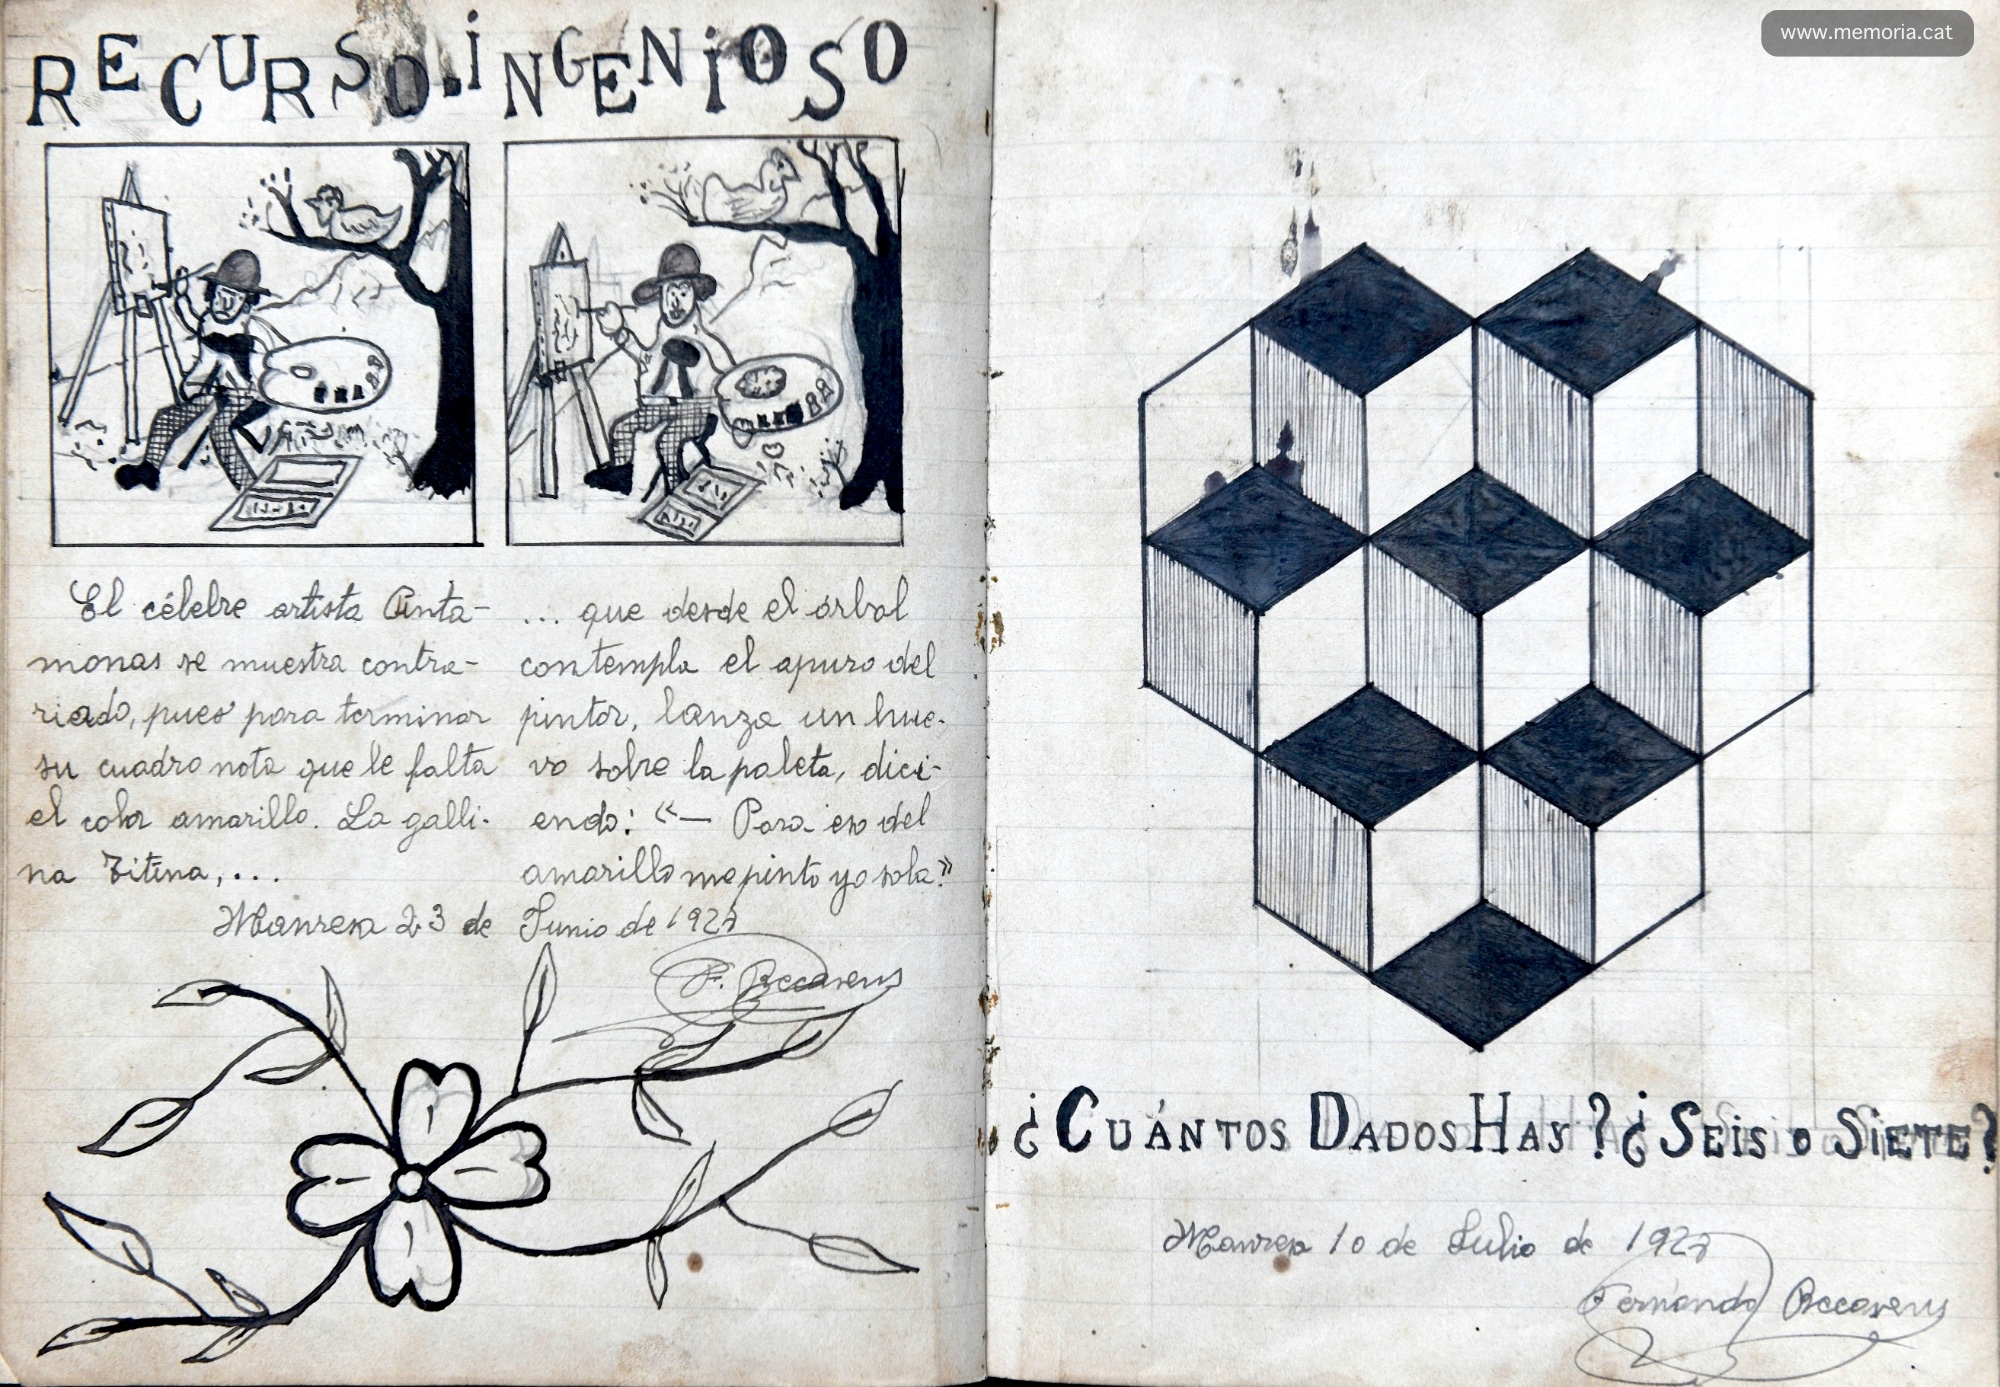 RECURSO.INGENIOSO
El célebre artista Pinta-
monas se muestra contra-
riado, pues para terminar
su cuadro nota que le falta
el color amarillo. La galli-
na Titina,...
... que desde el árbol
contempla el apuro del
pintor, lanza un hue-
vo sobre la paleta, dici-
endo: «— Para eso del
amarillo me pinto yo sola.»
Manresa 23 de Junio de 1927
F. Recasens
www.memoria.cat
¿CUÁNTOS DADOS HAY? ¿SEIS o SIETE?
Manresa 10 de Julio de 1927
Fernando Recasens